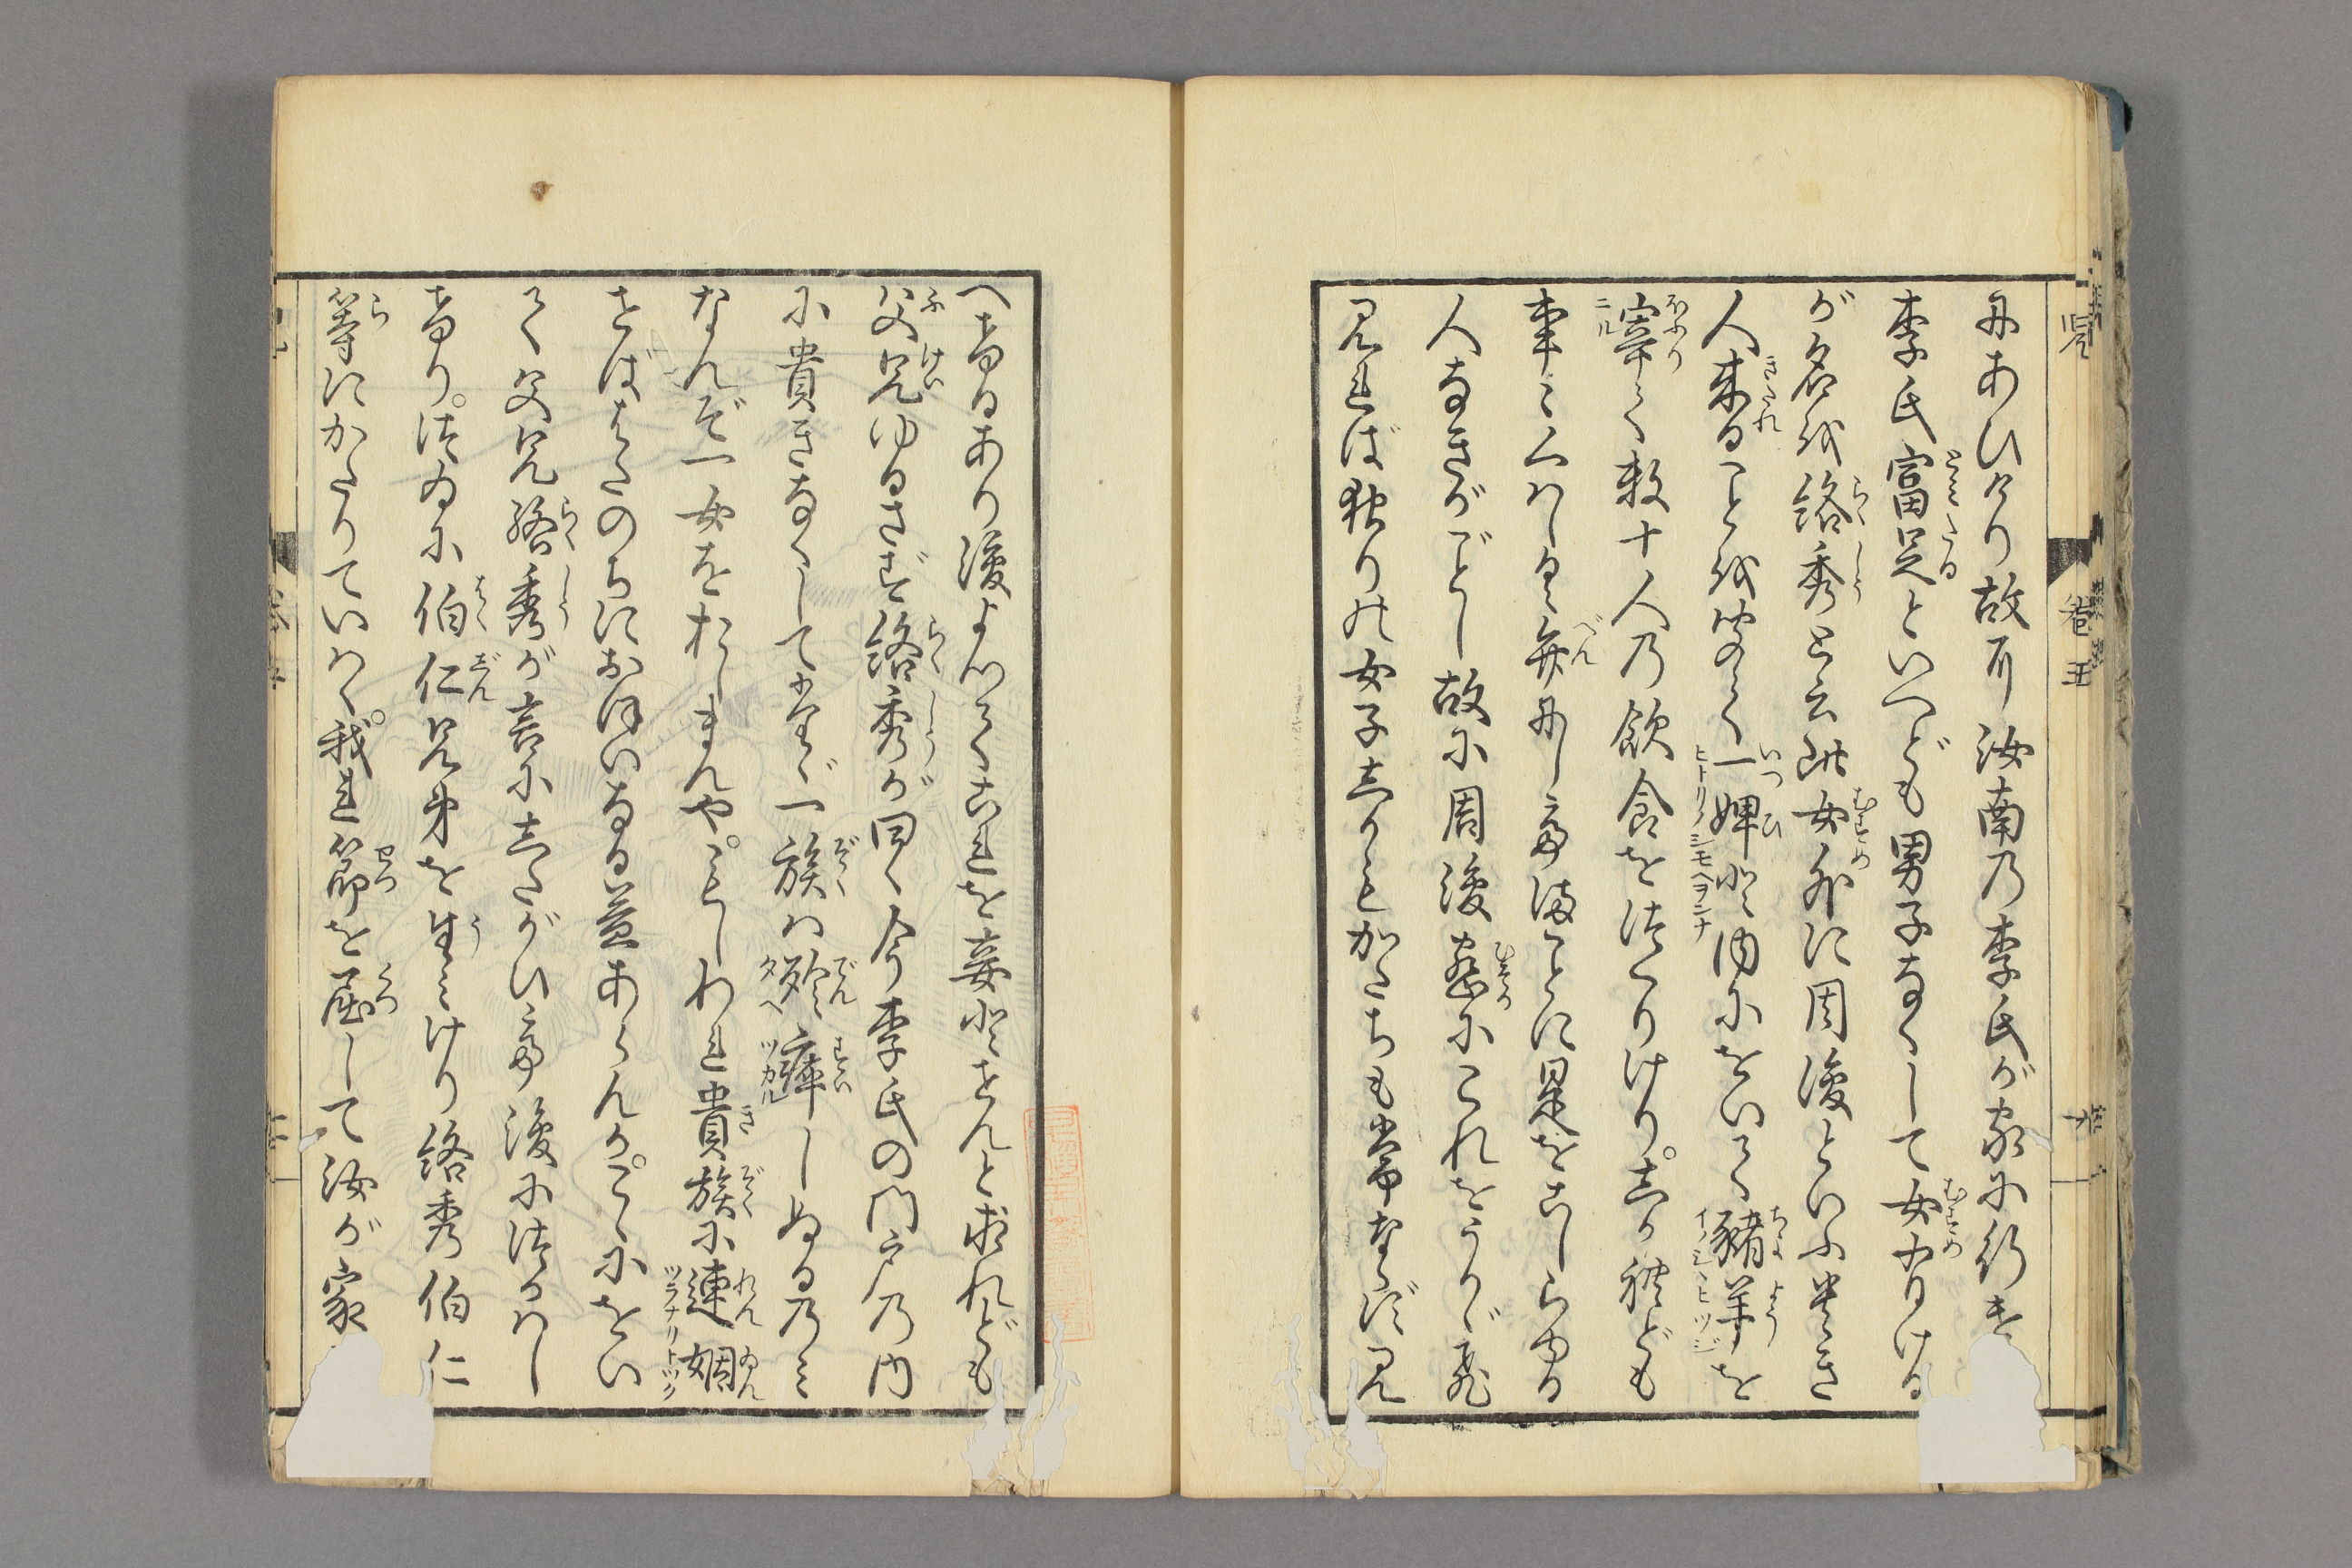 にあひけり故に汝南乃李氏が家に行き
李氏富足といへども男子なくして女ありける
が名を絡秀と云此女外に周浚といふ貴き
人来ることを聞て一婢と内にをいて猪羊を
宰て数十人乃飲食をつくりけりしかれども
事精しく弁にしてまことに是をこしらゆる
人なきがごとし故に周浚密にこれをうかゞひ
見れば独りの女子しかもかたちも常ならず見
へたるあり浚よつてこれを妾とせんと求れども
父兄ゆるさず絡秀が曰く今李氏の門戸乃内
に貴きなくしてたゞ一族は殄瘁しぬるのみ
なんぞ一女をおしまんやもしわれ貴族に連姻
せばそののちにおほいなる益あらんかこゝにをい
て父兄絡秀が言にしたがひて浚につかはし
たりつゐに伯仁兄弟を生みけり絡秀伯仁
等にかたりていはく我れ節を屈して汝が家